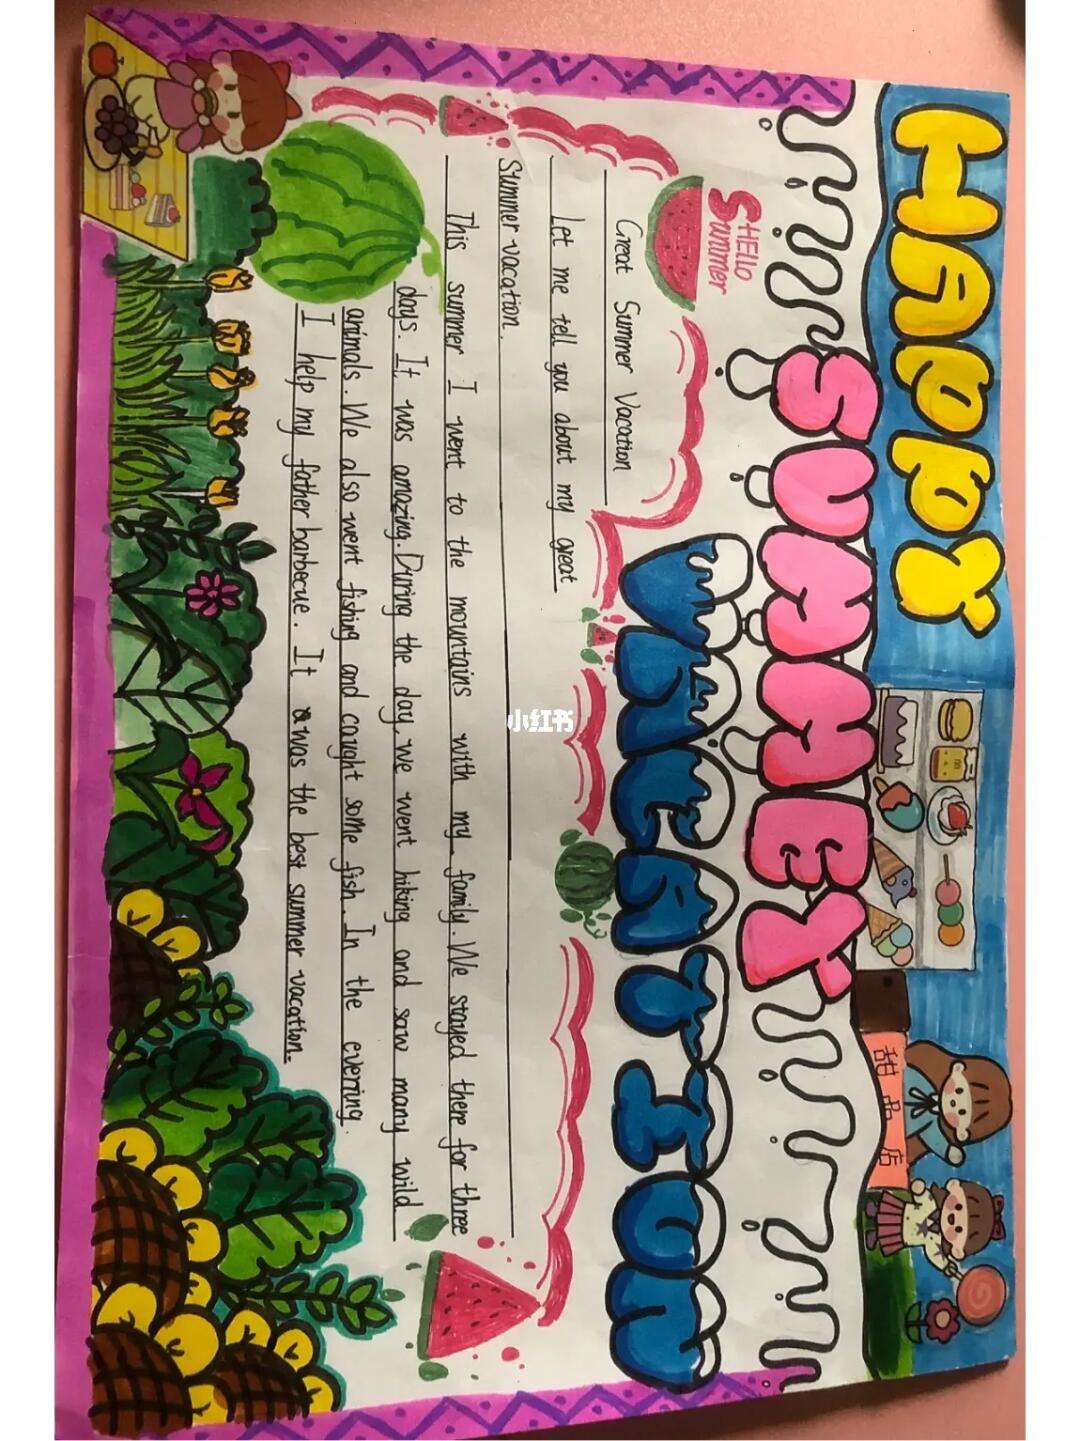 HAPPY
SUMMER
VCATION
HELLO
Summer
甜品店
Great Summer Vacation
Let me tell you about my great
Summer vacation.
This summer I went to the mountains with my family. We stayed there for three
days. It was amazing. During the day, we went hiking and saw many wild
animals. We also went fishing and caught some fish. In the evening.
I help my father barbecue. It was the best summer vacation.
小红书